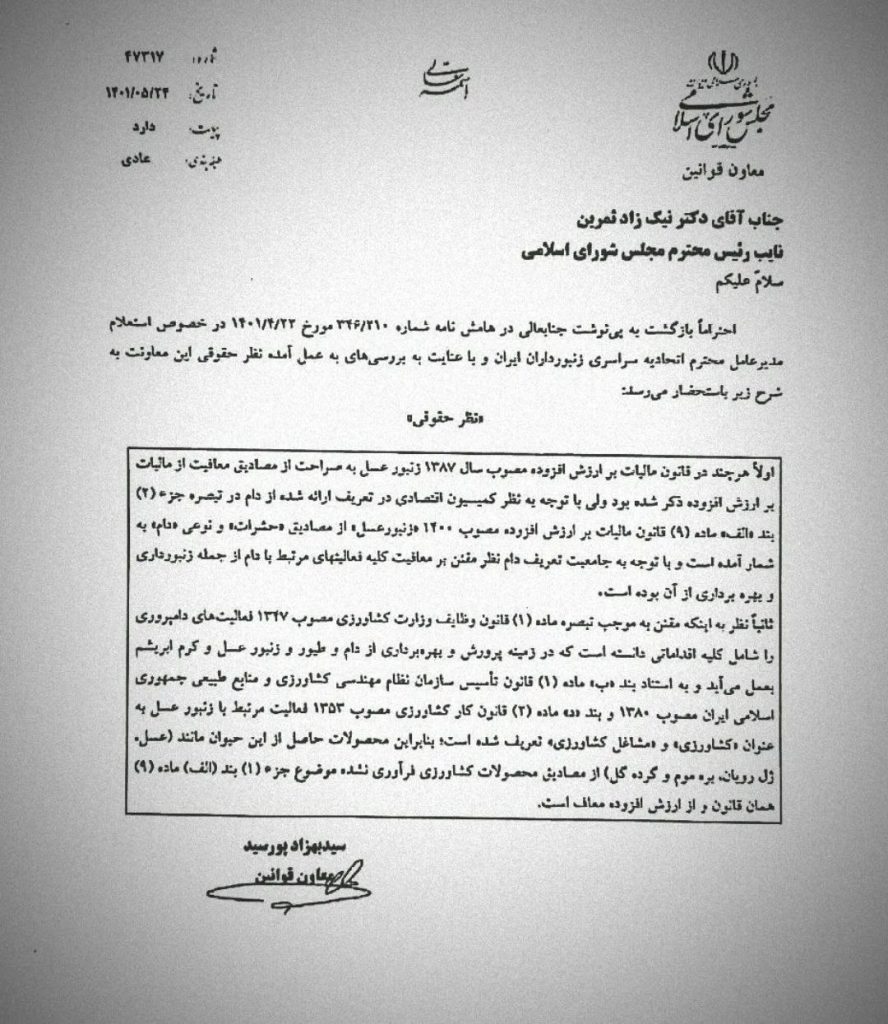 جمهوری اسلامی ایران
مجلس شورای اسلامی
معاون قوانین
بسمه تعالی
شماره: ۴۷۳۱۷
تاریخ: ۱۴۰۱/۰۵/۲۴
پیوست: دارد
طبقه‌بندی: عادی
جناب آقای دکتر نیک زاد ثمرین
نایب رئیس محترم مجلس شورای اسلامی
سلامٌ علیکم
احتراماً بازگشت به پی‌نوشت جنابعالی در هامش نامه شماره ۳۴۶/۲۱۰ مورخ ۱۴۰۱/۴/۲۲ در خصوص استعلام
مدیرعامل محترم اتحادیه سراسری زنبورداران ایران و با عنایت به بررسی‌های به عمل آمده نظر حقوقی این معاونت به
شرح زیر باستحضار می‌رسد:
«نظر حقوقی»
اولاً هرچند در قانون مالیات بر ارزش افزوده مصوب سال ۱۳۸۷ زنبور عسل به صراحت از مصادیق معافیت از مالیات
بر ارزش افزوده ذکر شده بود ولی با توجه به نظر کمیسیون اقتصادی در تعریف ارائه شده از دام در تبصره جزء (۲)
بند «الف» ماده (۹) قانون مالیات بر ارزش افزوده مصوب ۱۴۰۰ «زنبورعسل» از مصادیق «حشرات» و نوعی «دام» به
شمار آمده است و با توجه به جامعیت تعریف دام نظر مقنن بر معافیت کلیه فعالیتهای مرتبط با دام از جمله زنبورداری
و بهره برداری از آن بوده است.
ثانیاً نظر به اینکه مقنن به موجب تبصره ماده (۱) قانون وظایف وزارت کشاورزی مصوب ۱۳۴۷ فعالیت‌های دامپروری
را شامل کلیه اقداماتی دانسته است که در زمینه پرورش و بهره‌برداری از دام و طیور و زنبور عسل و کرم ابریشم
بعمل می‌آید و به استناد بند «ب» ماده (۱) قانون تأسیس سازمان نظام مهندسی کشاورزی و منابع طبیعی جمهوری
اسلامی ایران مصوب ۱۳۸۰ و بند «د» ماده (۲) قانون کار کشاورزی مصوب ۱۳۵۳ فعالیت مرتبط با زنبور عسل به
عنوان «کشاورزی» و «مشاغل کشاورزی» تعریف شده است؛ بنابراین محصولات حاصل از این حیوان مانند (عسل،
ژل رویان، بره موم و گرده گل) از مصادیق محصولات کشاورزی فرآوری نشده موضوع جزء (۱) بند (الف) ماده (۹)
همان قانون و از ارزش افزوده معاف است.
سیدبهزاد پورسید
معاون قوانین